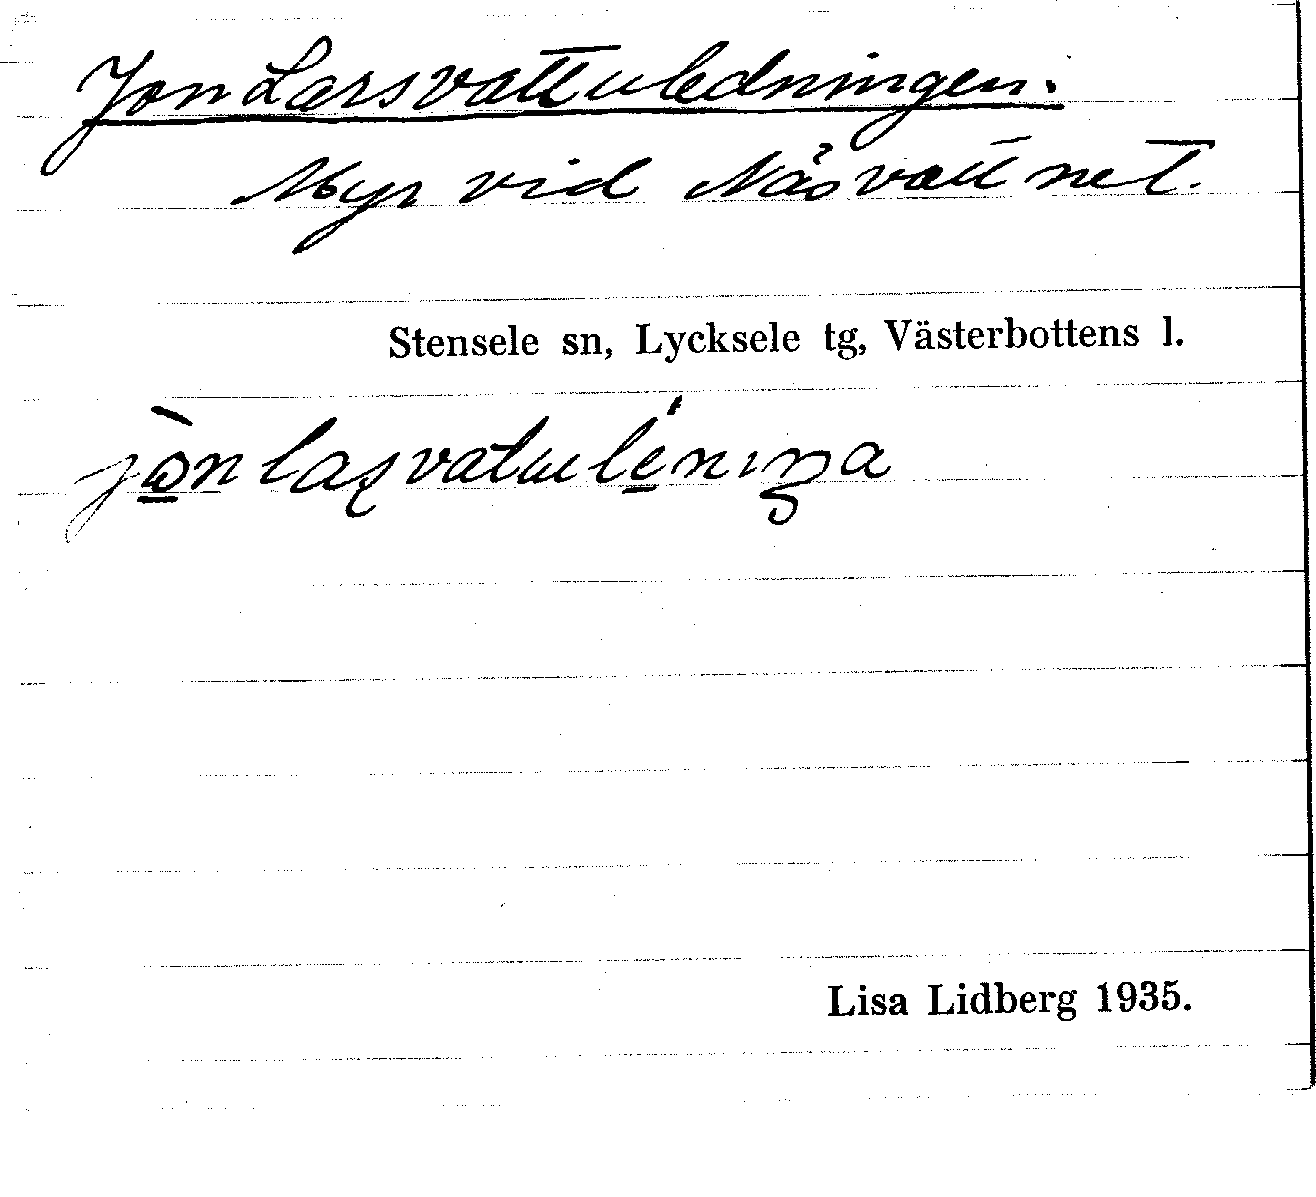 Jon Larsvattuledningen.
Myr vid Näsvattnet.
Stensele sn, Lycksele tg, Västerbottens l.
Lisa Lidberg 1935.